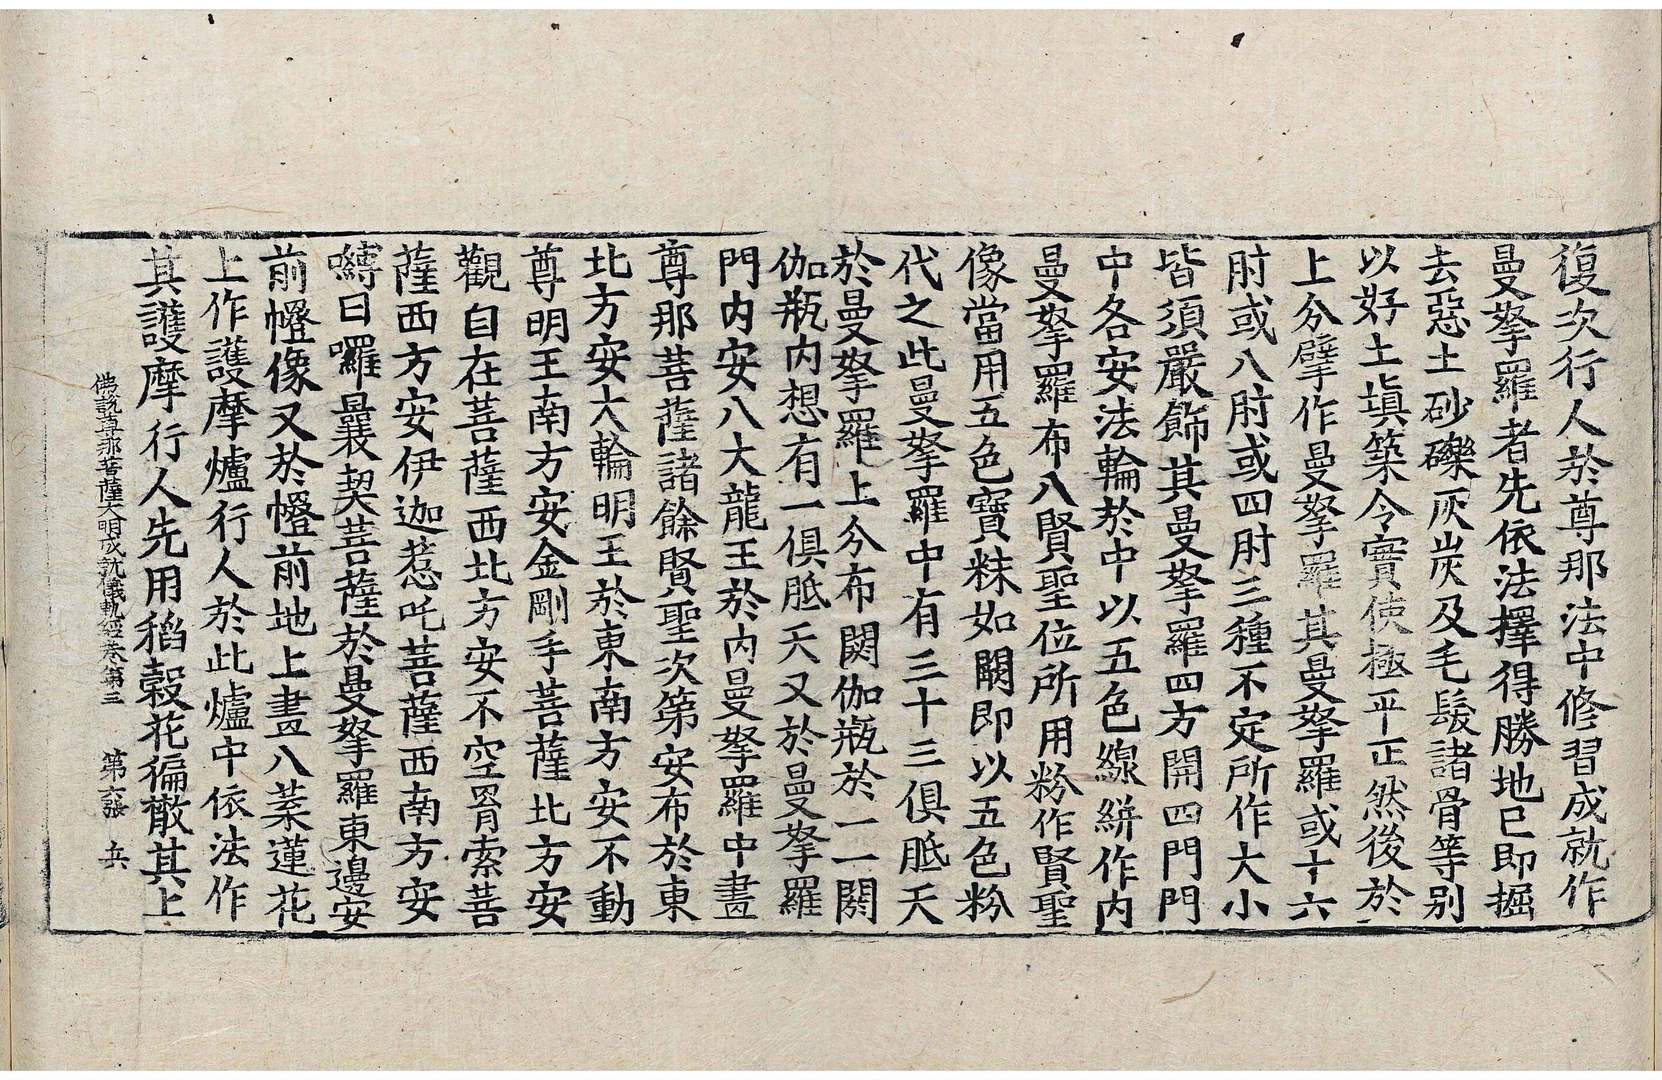 復次行人於尊那法中修習成就作
曼拏羅者先依法擇得勝地已即掘
去惡土砂礫灰炭及毛髮諸骨等别
以好土塡築令實使極平正然後於
上分擘作曼拏羅其曼拏羅或十六
肘或八肘或四肘三種不定所作大小
皆須嚴飾其曼拏羅四方開四門門
中各安法輪於中以五色線絣作内
曼拏羅布八賢聖位所用粉作賢聖
像當用五色寶粖如闕即以五色粉
代之此曼拏羅中有三十三俱胝天
於曼拏羅上分布閼伽瓶於一一閼
伽瓶内想有一俱胝天又於曼拏羅
門内安八大龍王於内曼拏羅中畫
尊那菩薩諸餘賢聖次第安布於東
北方安大輪明王於東南方安不動
尊明王南方安金剛手菩薩北方安
觀自在菩薩西北方安不空罥索菩
薩西方安伊迦惹吒菩薩西南方安
嚩日囉曩契菩薩於曼拏羅東邊安
前㡧像又於㡧前地上畫八葉蓮花
上作護摩爐行人於此爐中依法作
其護摩行人先用稻穀花徧撒其上
佛説尊那菩薩大明成就儀軌經卷第三　第六張　兵